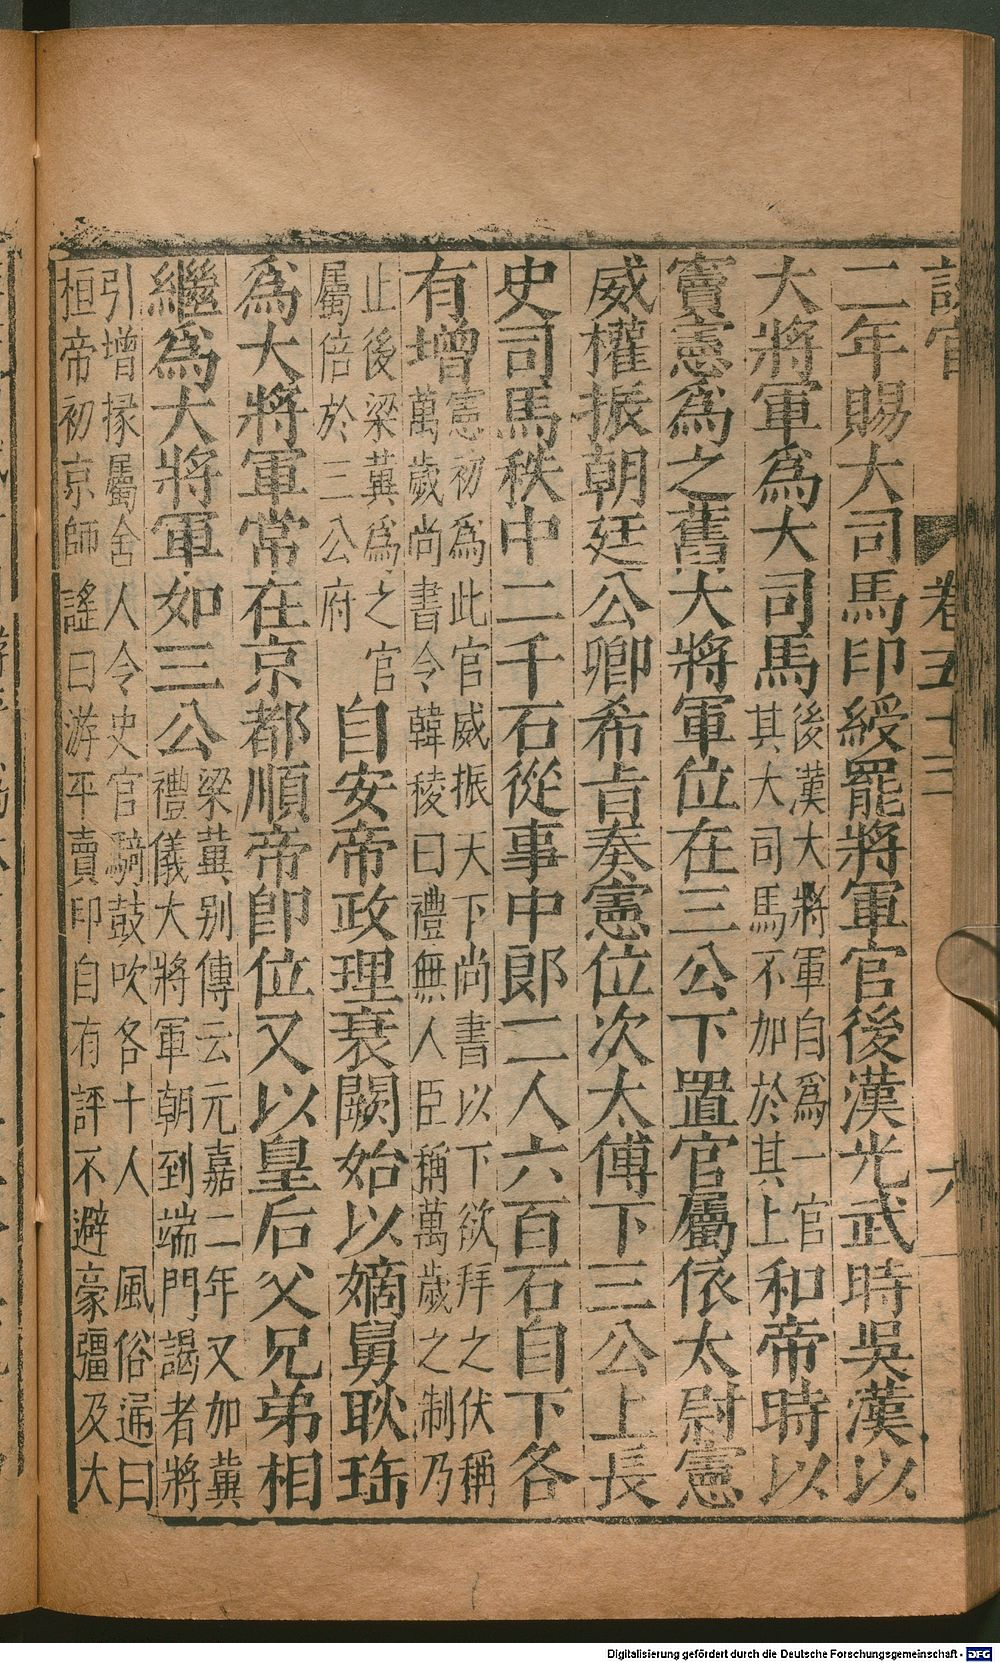 設官
卷五十三
六
二年賜大司馬印綬罷將軍官後漢光武時吳漢以
大將軍爲大司馬後漢大將軍自爲一官其大司馬不加於其上和帝時以
竇憲爲之舊大將軍位在三公下置官屬依太尉憲
威權振朝廷公卿希㫖奏憲位次太傅下三公上長
史司馬秩中二千石從事中郎二人六百石自下各
有增憲初爲此官威振天下尚書以下欲拜之伏稱萬歲尚書令韓稜曰禮無人臣稱萬歲之制乃
止後梁冀爲之官屬倍於三公府自安帝政理衰闕始以嫡舅耿珤
爲大將軍常在京都順帝卽位又以皇后父兄弟相
繼爲大將軍如三公梁冀别傳云元嘉二年又加冀禮儀大將軍朝到端門謁者將
引增掾屬舍人令史官騎鼓吹各十人風俗通曰桓帝初京師謠曰游平賣印自有評不避豪彊及大
Digitalisierung gefördert durch die Deutsche Forschungsgemeinschaft - DFG